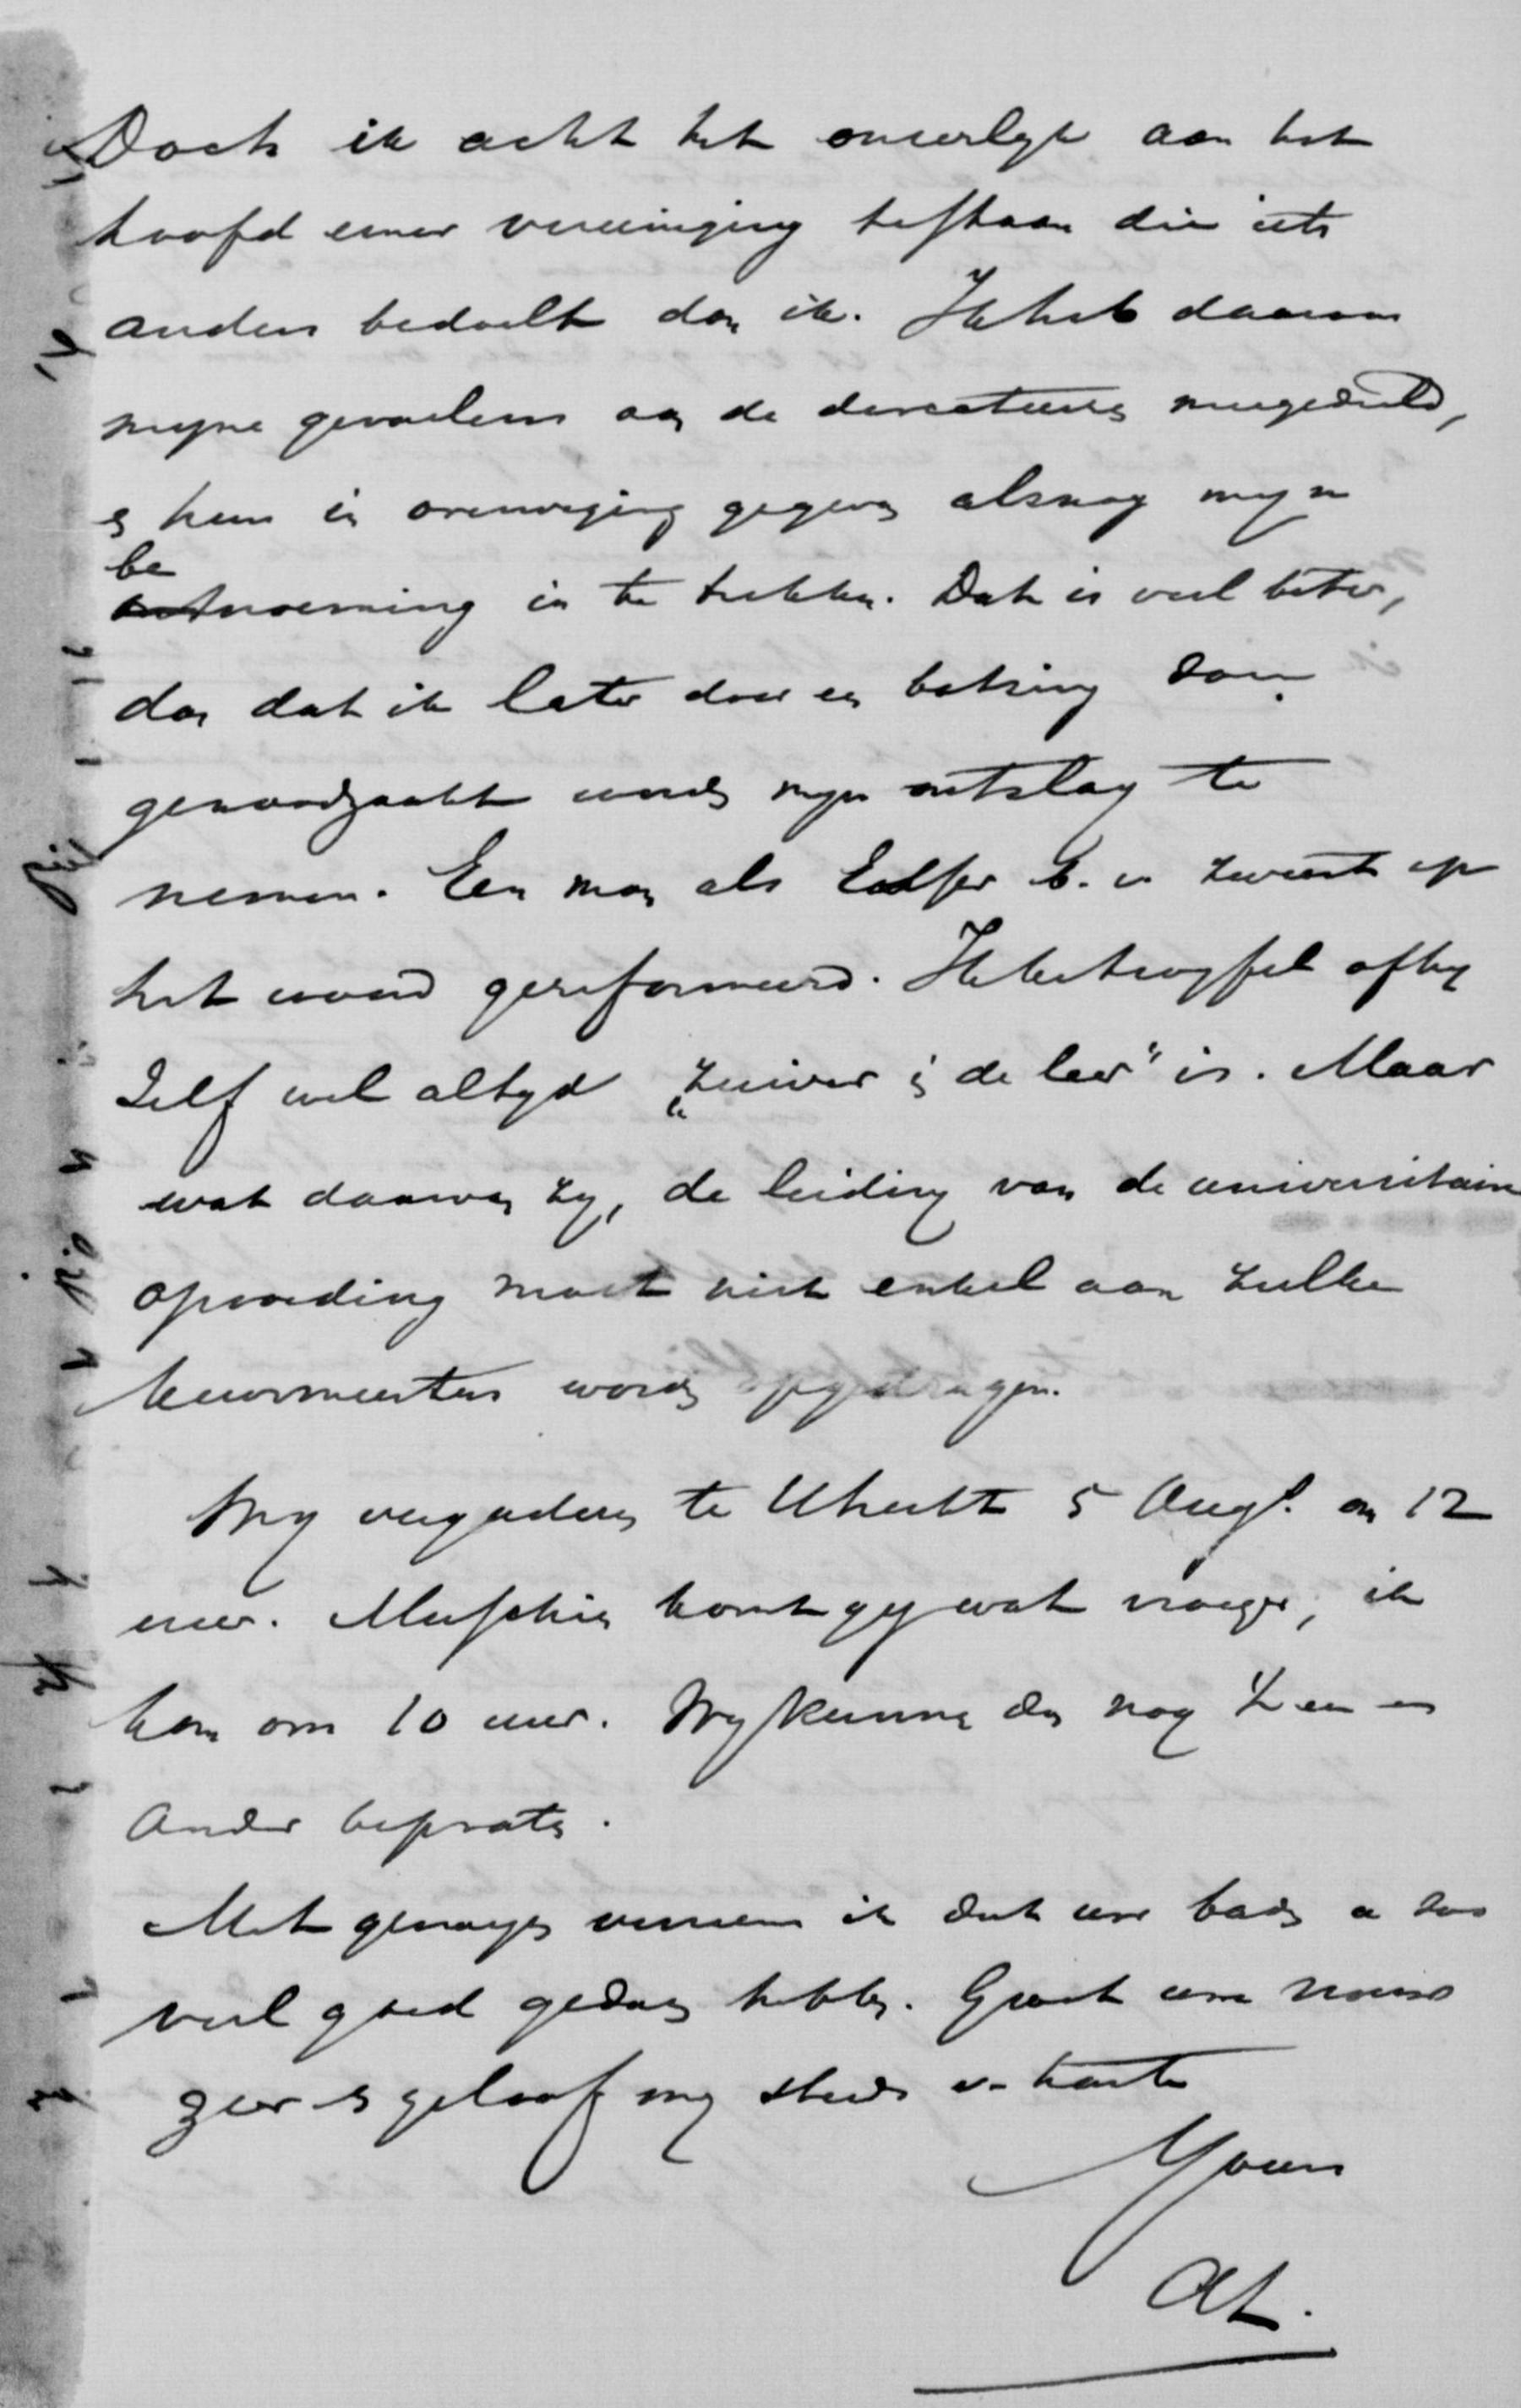 Doch ik acht het oneerlyk aan het
hoofd eener vereeniging te staan die iets
anders bedoelt dan ik. Ik heb daarom
myne gevoelens aan de directeuren meegedeeld,
en hun in overweging gegeven alsnog myn
be
noeming in te trekken. Dat is veel beter,
dan dat ik later door en botsing
genoodzaakt word myn ontslag te
nemen. Een man als Esser b. v. zweert op
het woord gereformeerd. Ik betwyfel of hy
zelf wel altyd „zuiver in de leer" is. Maar
wat daarvan zy, de leiding van de universitaire
opvoeding moet niet enkel aan zulke
keurmeesters worden opgedragen.
Wy vergaderen te Utrecht 5 Aug. om 12
uur. Misschien komt gy wat vroeger, ik
kom om 10 uur. Wy kunnen dan nog 't een en
ander bepraten.
Met genoegen vernam ik dat uwe baden u zoo
veel goed gedaan hebben. Groet uwe vrouw
zeer en geloof my steeds v. harte
Yours
AL.